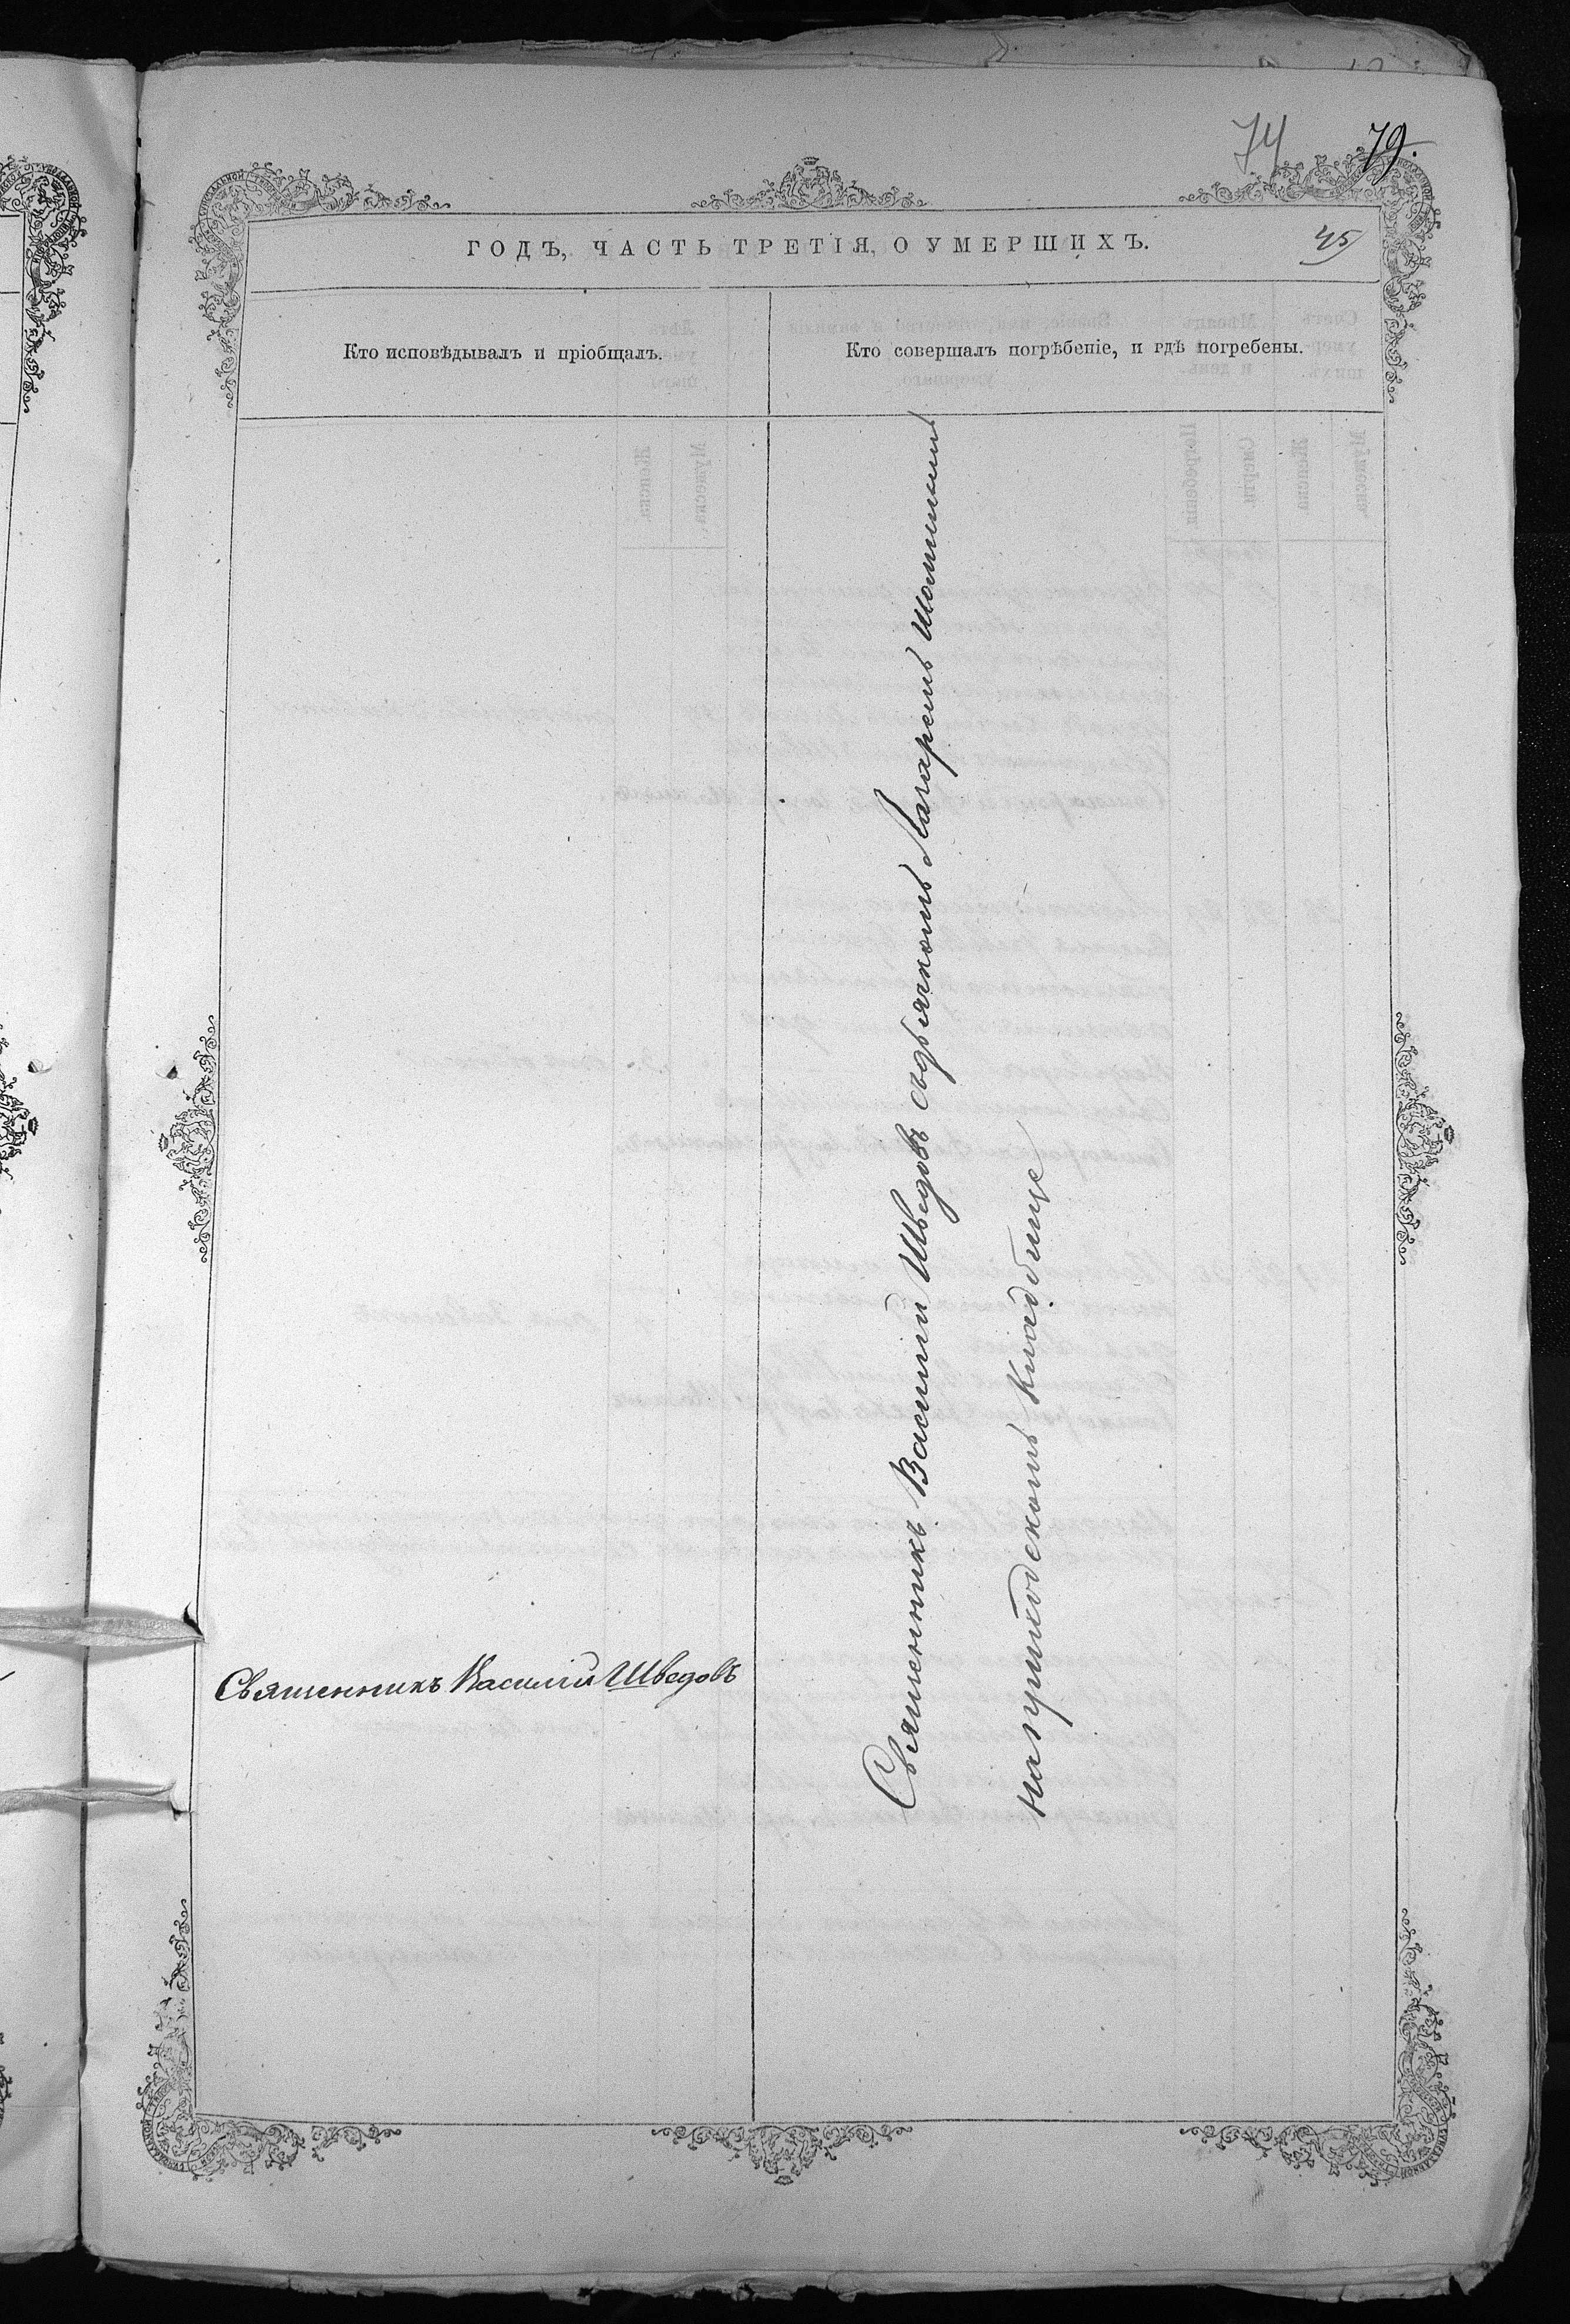 74 79.
ГОДЪ, ЧАСТЬ ТРЕТІЯ, О УМЕРШИХЪ.
45
Кто исповѣдывалъ и пріобщалъ.
Кто совершалъ погрѣбеніе, и гдѣ погребены.
Священникъ Василій Шведовъ
Священникъ Василій Шведовъ съдьячкомъ
наприходскомъ кладбище